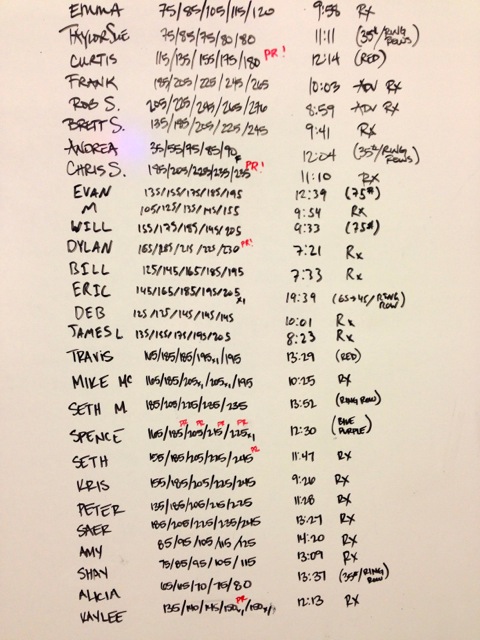 EMMA 75/85/105/115/120 9:58 RX
TAYLOR SUE 75/85/75/80/80 11:11 (35#/RING ROWS)
CURTIS 115/135/155/175/180 PR! 12:14 (RED)
FRANK 185/205/225/245/265 10:03 ADV RX
ROB S. 205/225/245/265/276 8:59 ADV RX
BRETT S. 135/185/205/225/245 9:41 RX
ANDREA 35/55/95/85/90F 12:04 (35#/RING ROWS)
CHRIS S. 185/205/225/235/235 PR! 11:10 RX
EVAN 135/155/175/185/195 12:39 (75#)
M 105/125/135/145/155 9:54 RX
WILL 155/175/185/195/205 9:33 (75#)
DYLAN 165/185/215/225/230 PR! 7:21 Rx
BILL 125/145/165/185/195 7:33 Rx
ERIC 145/165/185/195/205x1 19:39 (65→45/RING ROW)
DEB 125/135/145/145/145 10:01 Rx
JAMES L 135/155/175/195/205 8:23 Rx
TRAVIS 165/185/185/195x1/195 13:29 (RED)
MIKE MC 165/185/205x1/205x1/195 10:25 RX
SETH M 185/205/225/235/235 13:52 (RING ROW)
PR PR PR PR
SPENCE 165/185/205/215/225x1 12:30 (BLUE PURPLE)
SETH 155/185/205/225/245 PR 11:47 RX
KRIS 155/185/205/225/245 9:26 RX
PETER 135/185/205/215/225 11:28 RX
SAER 185/205/225/235/245 13:27 RX
AMY 85/95/105/115/125 14:20 RX
SHAY 75/85/95/105/115 13:09 RX
ALICIA 65/65/70/75/80 13:37 (35#/RING ROW)
KAYLEE 135/140/145/150x1/150x1 PR 12:13 RX